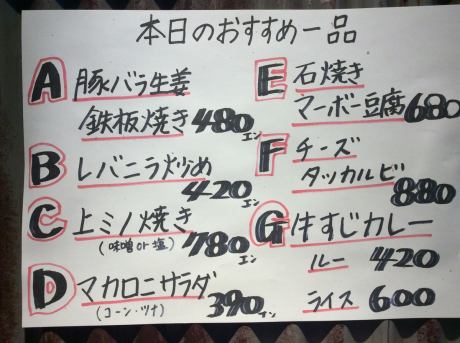 本日のおすすめ一品
A 豚バラ生姜
鉄板焼き 480エン
B レバニラ炒め
420エン
C 上ミノ焼き
(味噌or塩) 780エン
D マカロニサラダ
(コーン・ツナ) 390エン
E 石焼き
マーボー豆腐 680
F チーズ
タッカルビ
880
G 牛すじカレー
ルー 420
ライス 600